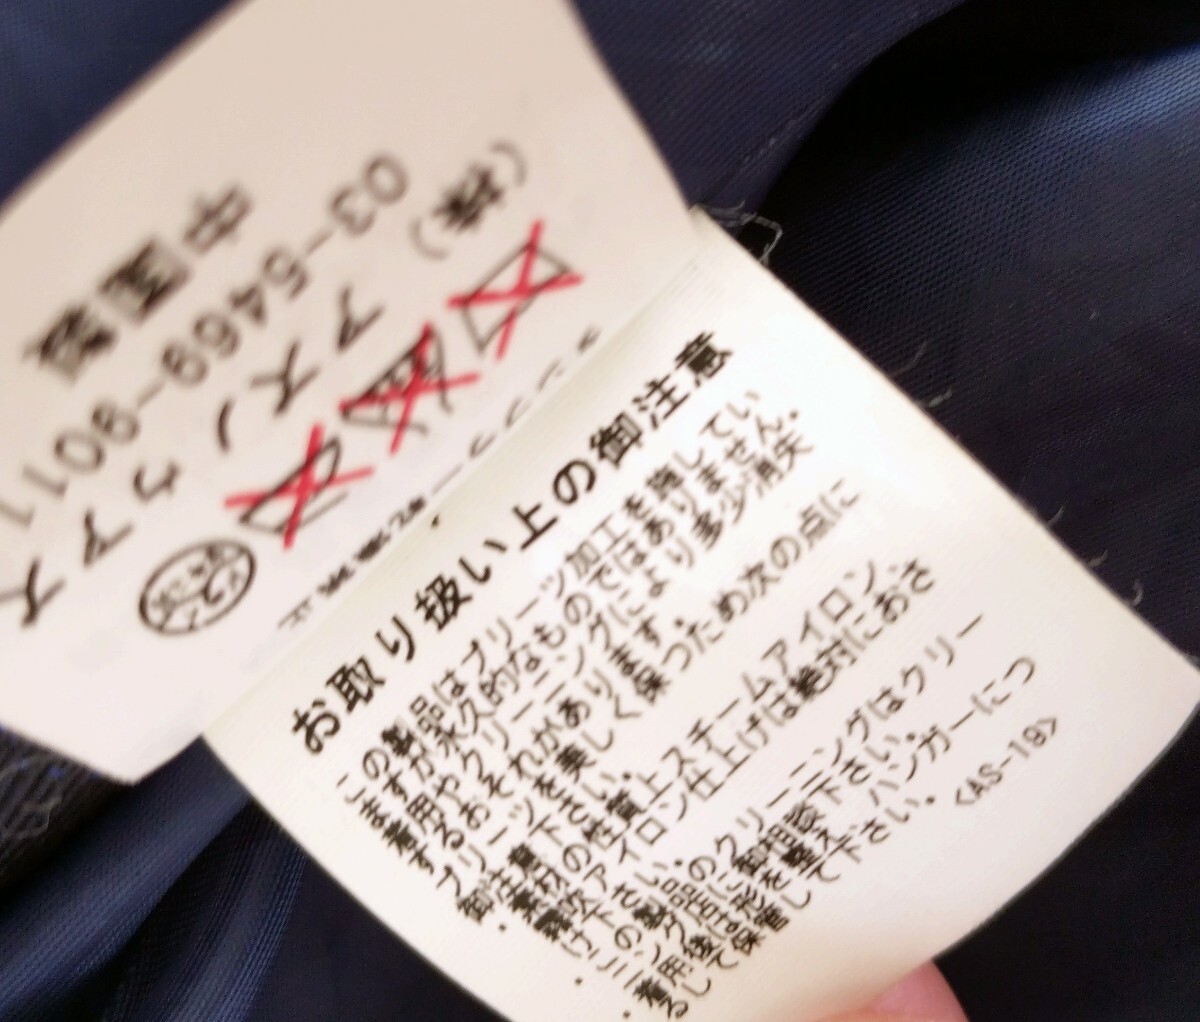 (株)アスノゥアス
03-5469-9011
中国製
お取り扱い上の御注意
この製品はプリーツ加工を施してい
ますが永久的なものではありません.
着用やクリーニングにより多少消失
するおそれがあります.
プリーツを美しく保つため次の点に
御注意下さい.
・素材の性質上スチームアイロン、
霧吹アイロン仕上げは絶対におさ
け下さい.
・この製品のクリーニングはクリー
ニング店に御相談下さい.
・着用後は形を整え、ハンガーにつ
るして保管して下さい.
<AS-19>